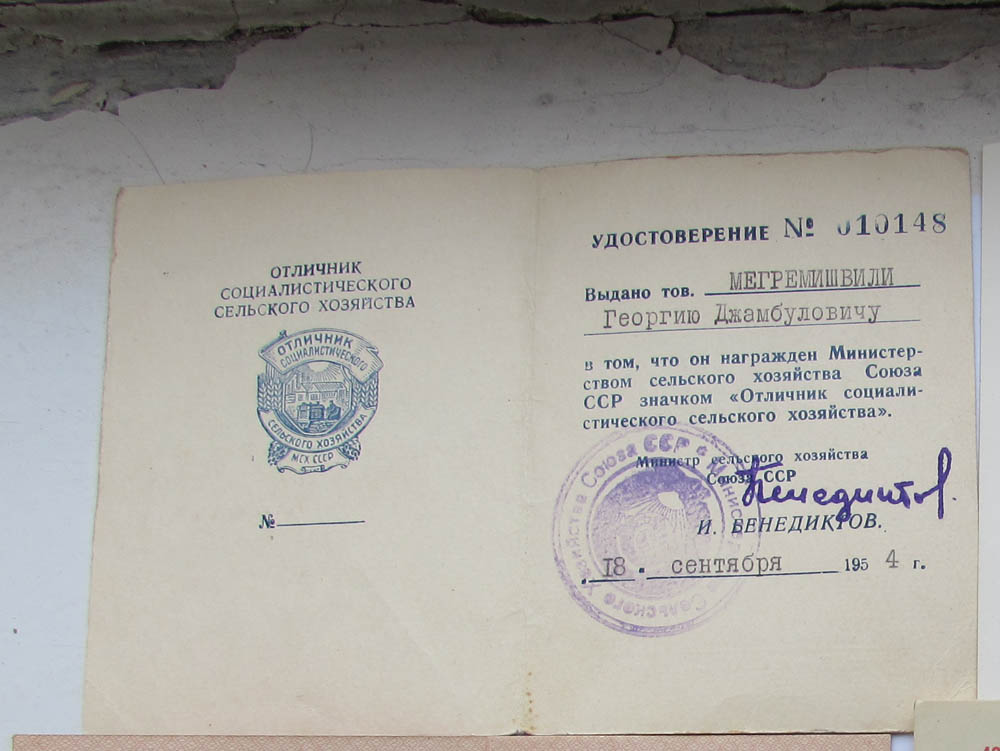 ОТЛИЧНИК
СОЦИАЛИСТИЧЕСКОГО
СЕЛЬСКОГО ХОЗЯЙСТВА
ОТЛИЧНИК
СОЦИАЛИСТИЧЕСКОГО
СЕЛЬСКОГО ХОЗЯЙСТВА
МСХ СССР
№
УДОСТОВЕРЕНИЕ № 010148
Выдано тов. МЕГРЕМИШВИЛИ
Георгию Джамбуловичу
в том, что он награжден Министер-
ством сельского хозяйства Союза
ССР значком «Отличник социали-
стического сельского хозяйства».
Министр сельского хозяйства
Союза ССР
Бенедиктов.
И. БЕНЕДИКТОВ.
18 сентября 1954 г.
Сельского Хозяйства Союза ССР